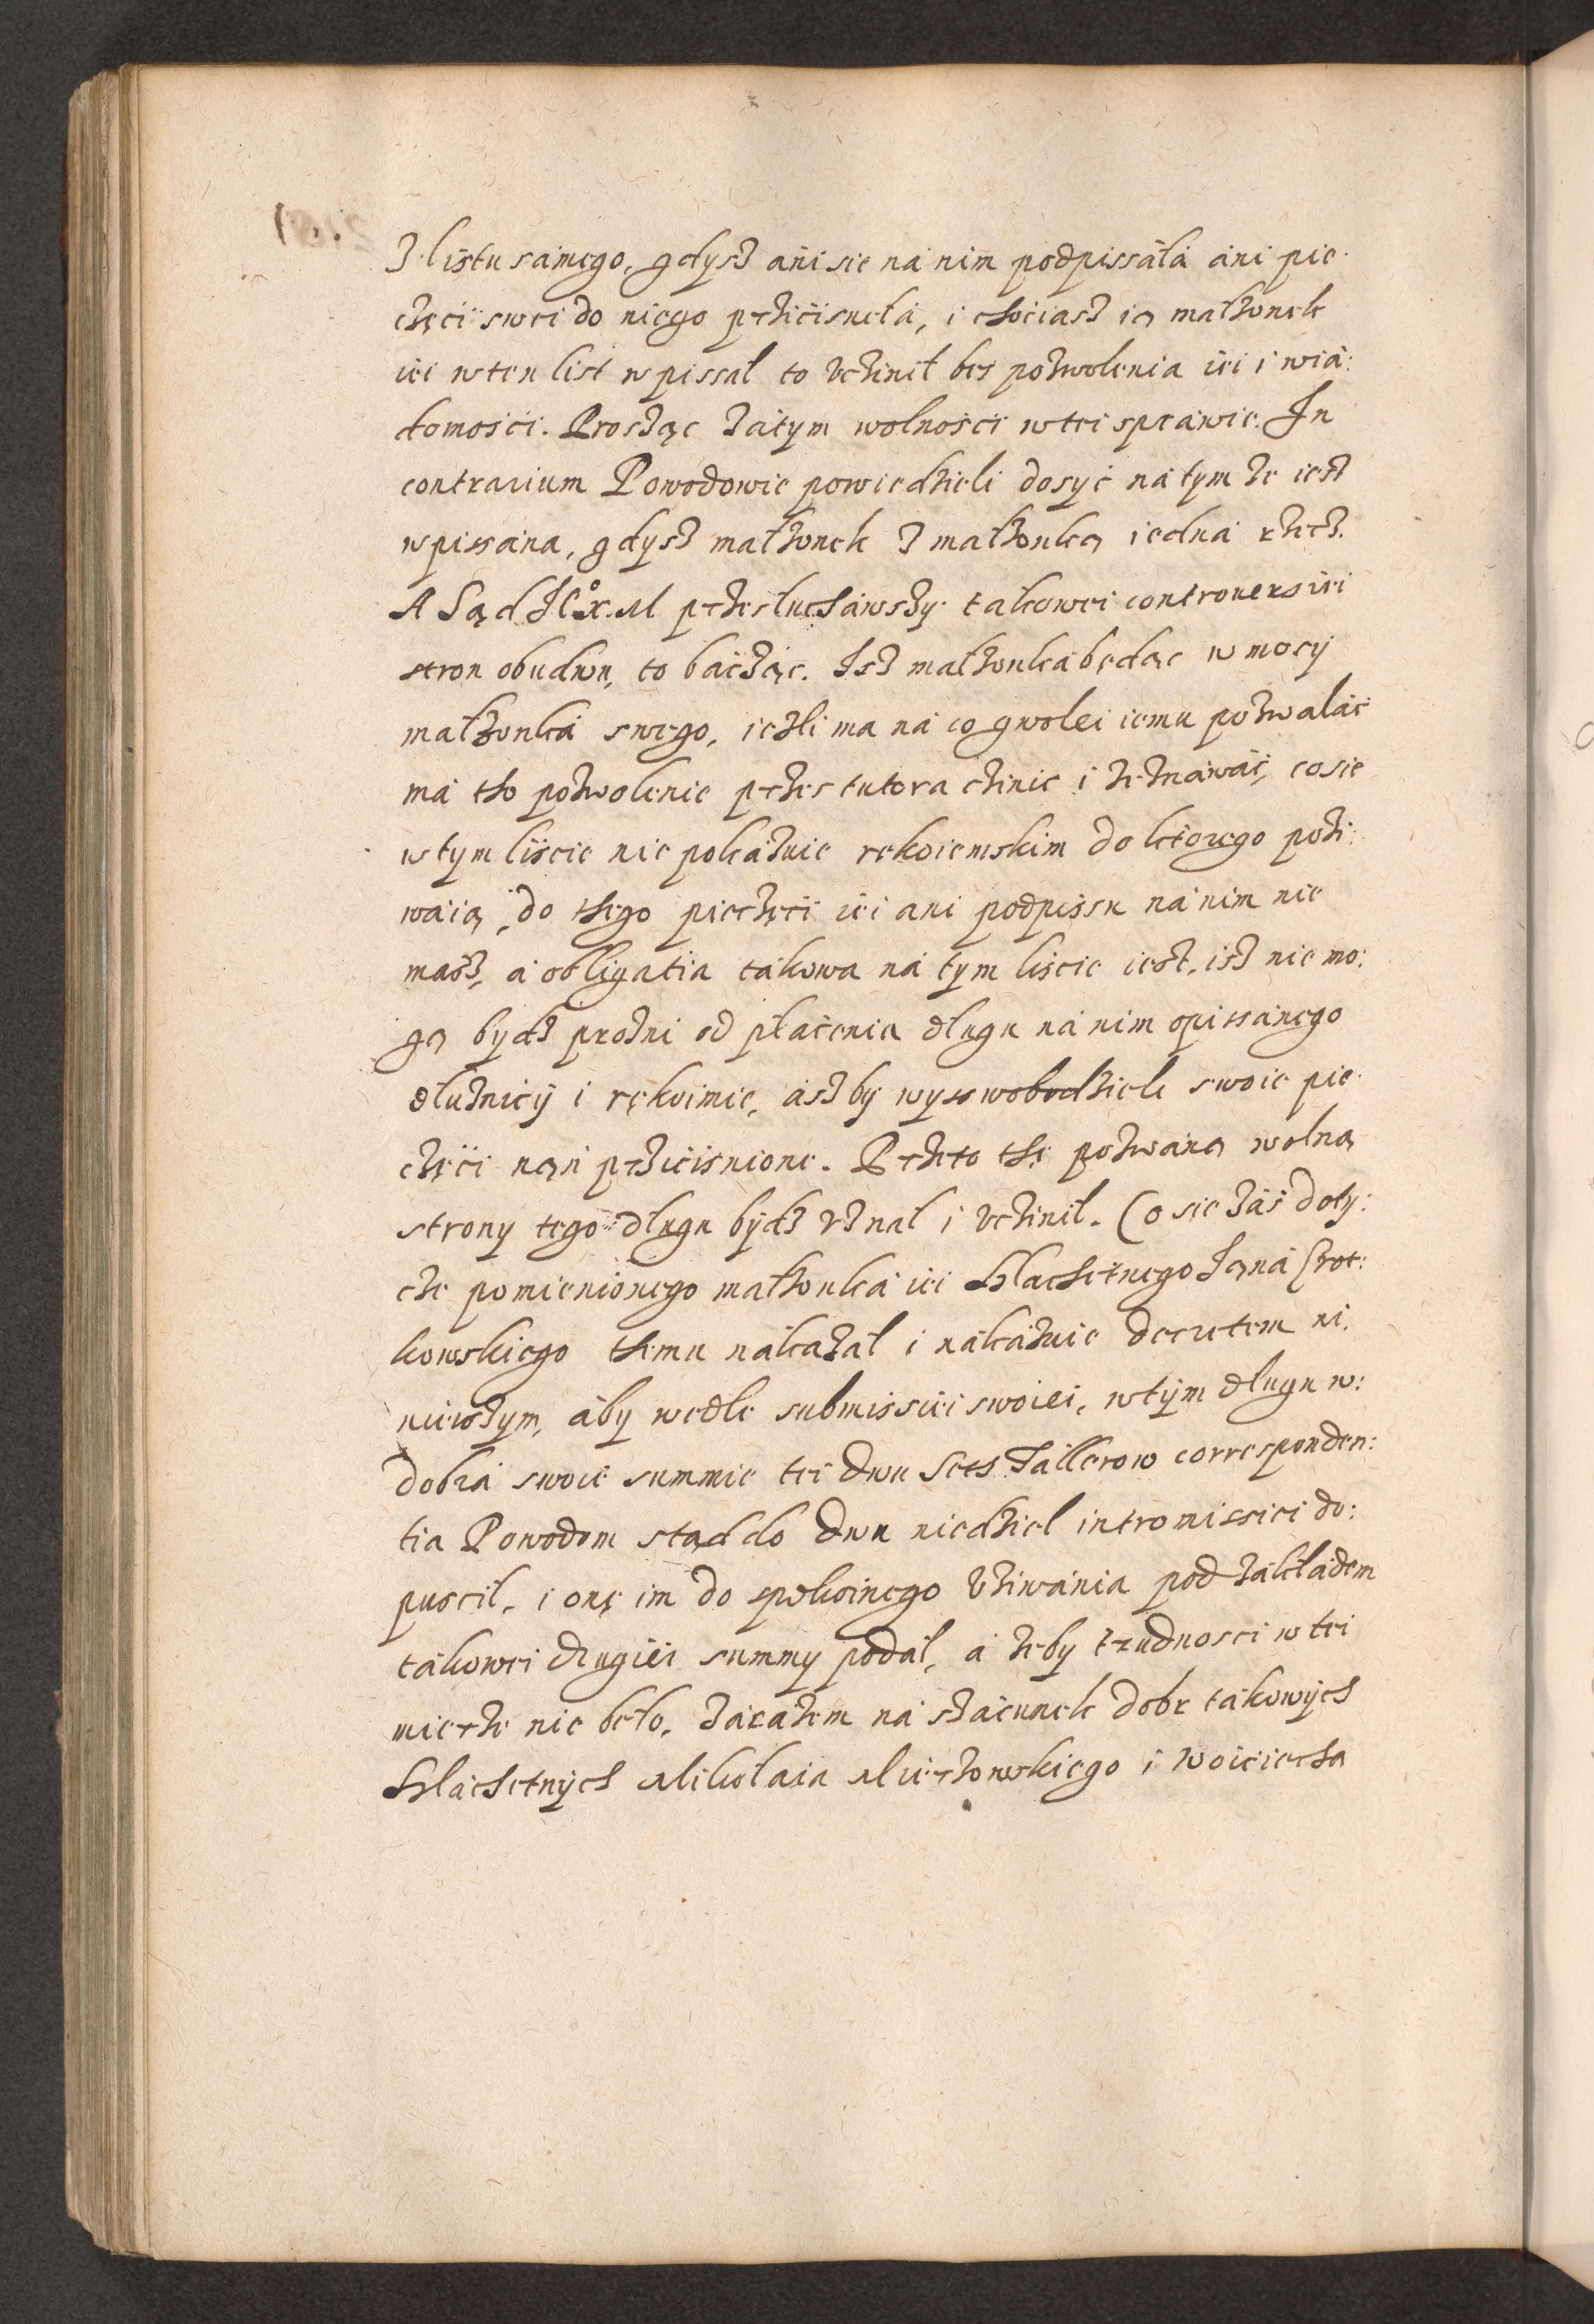 Z listu sámego, gdysz áni sie ná nim podpissáłá áni pie
częci swei do niego prziciśnełá, i chociasz ią małżonek
iei w ten list wpissał to vcżinił bes pozwolenia iei i wiá:
domości. Prosząc zátym wolności w tei sprawie. In
contrarium Powodowie powiedzieli dosyć ná tym że iest
wpissána, gdysz małżonek z małżonką iedná rzecz.
A Sąd J C X M przesłuchawszy takowei controuersiei
stron obudwu, to bácząc. Isz małżonká będąc w mocy
małżonká swego, ieżli ma ná co gwolei iemu pozwaláć
má tho pozwolenie przes tutora czinic i zeznáwáć, co sie
w tym liscie nie pokázuie rękoiemskim do ktorego pozi:
wáią, do thego pieczęci iei ani podpissu ná nim nie
mász, á obligatia tákowa ná tym liscie iest, isz nie mo:
gą bydz prozni od płácenia długu ná nim opissánego
dłużnicy i rękoimie, ász by wysswobodzieli swoie pie
częci nąń prziciśnione. Przeto thę pozwáną wolną
strony tego długu bydz vznał i vczinił. Co sie záś doty:
cże pomienionego małżonká iei Slachetnego Janá Srot:
kowskiego themu nákazał i nákázuie decretem ni.
nieiszym, áby wedle submissiei swoiei, w tym długu w:
dobrá swoie summie tei dwu Set Tállerow corresponden:
tia Powodom stąd do dwu niedziel intromissiei do:
puscił, i onę im do spokoinego vżiwánia pod zakładem
tákowei drugiei summy podał, á żeby trudnosci w tei
mierze nie beło. Zárázem ná szácunek dobr tákowych
Sláchetnych Mikołaia Mierzowskiego i Woiciecha